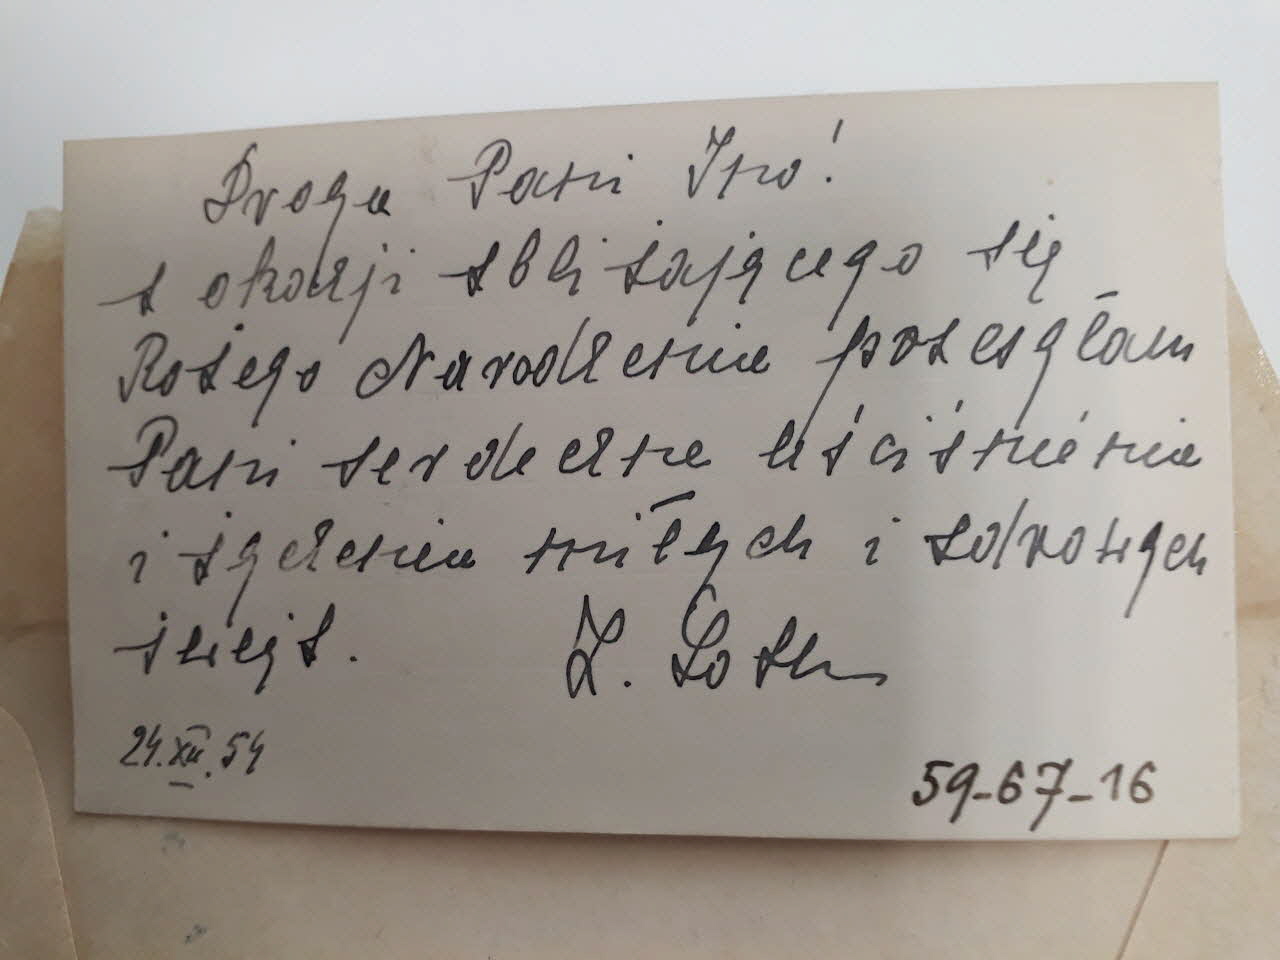 Droga Pani Ino!
z okazji zbliżającego się
Bożego Narodzenia przesyłam
Pani serdeczne uściśnienia
i życzenia miłych i zdrowych
świąt. Z. Loth
24.XII.54
59-67-16